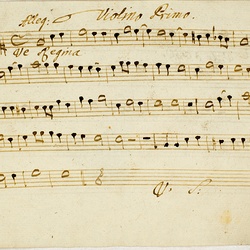 Alleg: Violino Primo.
Ve Regina
V. S.